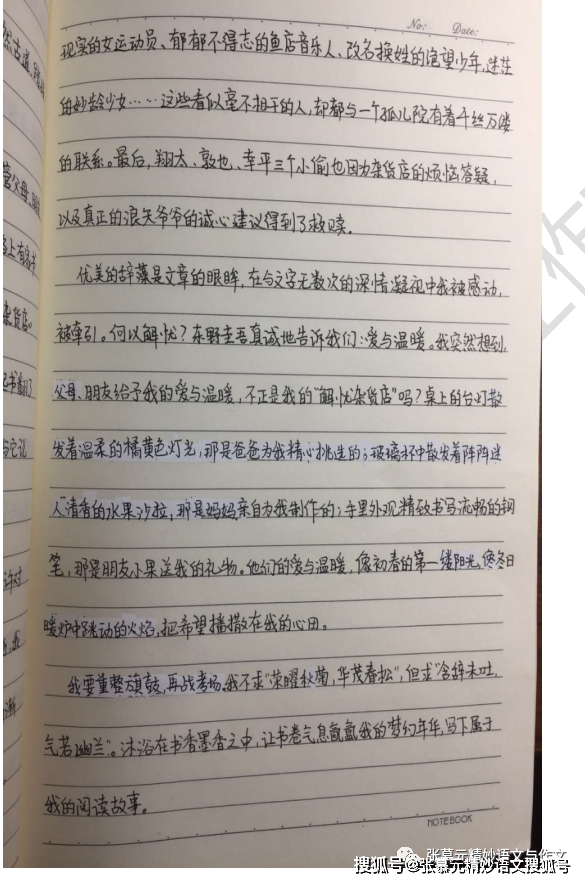 No: Date:
现实的女运动员、郁郁不得志的鱼店音乐人、改名换姓的绝望少年,迷茫
的妙龄少女……这些看似毫不相干的人,却都与一个孤儿院有着千丝万缕
的联系。最后,翔太、敦也、幸平三个小偷也因为杂货店的烦恼答疑,
以及真正的浪矢爷爷的诚心建议得到了救赎。
优美的辞藻是文章的眼眸,在与文字无数次的深情凝视中我被感动,
被牵引。何以解忧?东野圭吾真诚地告诉我们:爱与温暖。我突然想到,
父母、朋友给予我的爱与温暖,不正是我的“解忧杂货店”吗?桌上的台灯散
发着温柔的橘黄色灯光,那是爸爸为我精心挑选的;玻璃杯中散发着阵阵迷
人清香的水果沙拉,那是妈妈亲自为我制作的;手里外观精致书写流畅的钢
笔,那是朋友小果送我的礼物。他们的爱与温暖,像初春的第一缕阳光,像冬日
暖炉中跳动的火焰,把希望播撒在我的心田。
我要重整旗鼓,再战考场。我不求“荣曜秋菊,华茂春松”,但求“含辞未吐,
气若幽兰”。沐浴在书香墨香之中,让书卷气息氤氲我的梦幻年华,写下属于
我的阅读故事。
NOTEBOOK
张慕元精妙语文与作文
搜狐号@张慕元精妙语文搜狐号